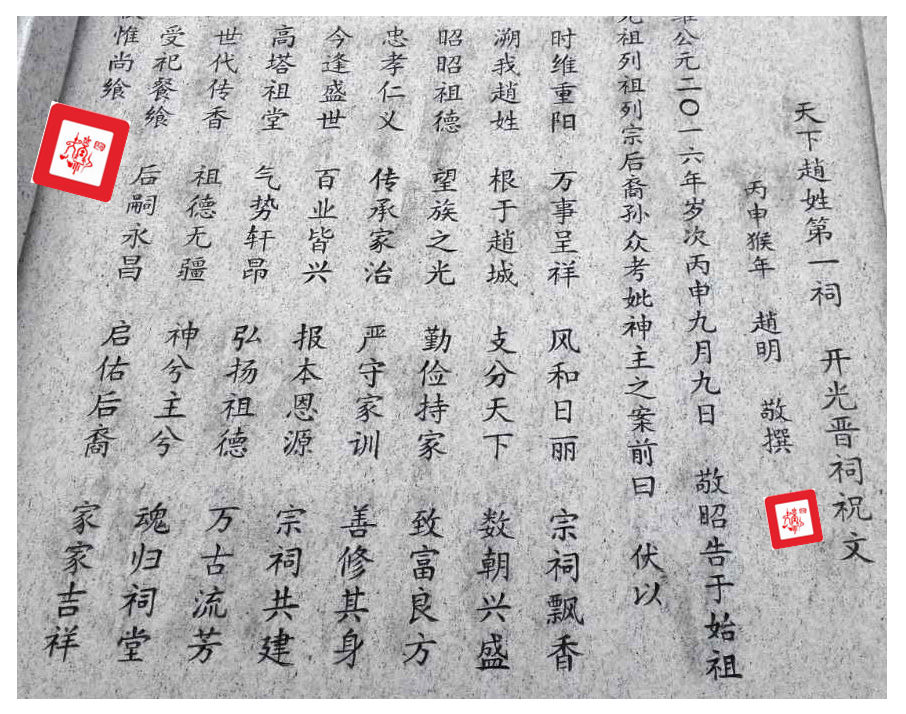 天下趙姓第一祠 开光晋祠祝文
丙申猴年 趙明 敬撰
公元二〇一六年岁次丙申九月九日 敬昭告于始祖
祖列祖列宗后裔孙众考妣神主之案前曰 伏以
时维重阳 万事呈祥 风和日丽 宗祠飘香
溯我趙姓 根于趙城 支分天下 数朝兴盛
昭昭祖德 望族之光 勤俭持家 致富良方
忠孝仁义 传承家治 严守家训 善修其身
今逢盛世 百业皆兴 报本恩源 宗祠共建
高塔祖堂 气势轩昂 弘扬祖德 万古流芳
世代传香 祖德无疆 神兮主兮 魂归祠堂
受祀餐飨 后嗣永昌 启佑后裔 家家吉祥
惟尚飨